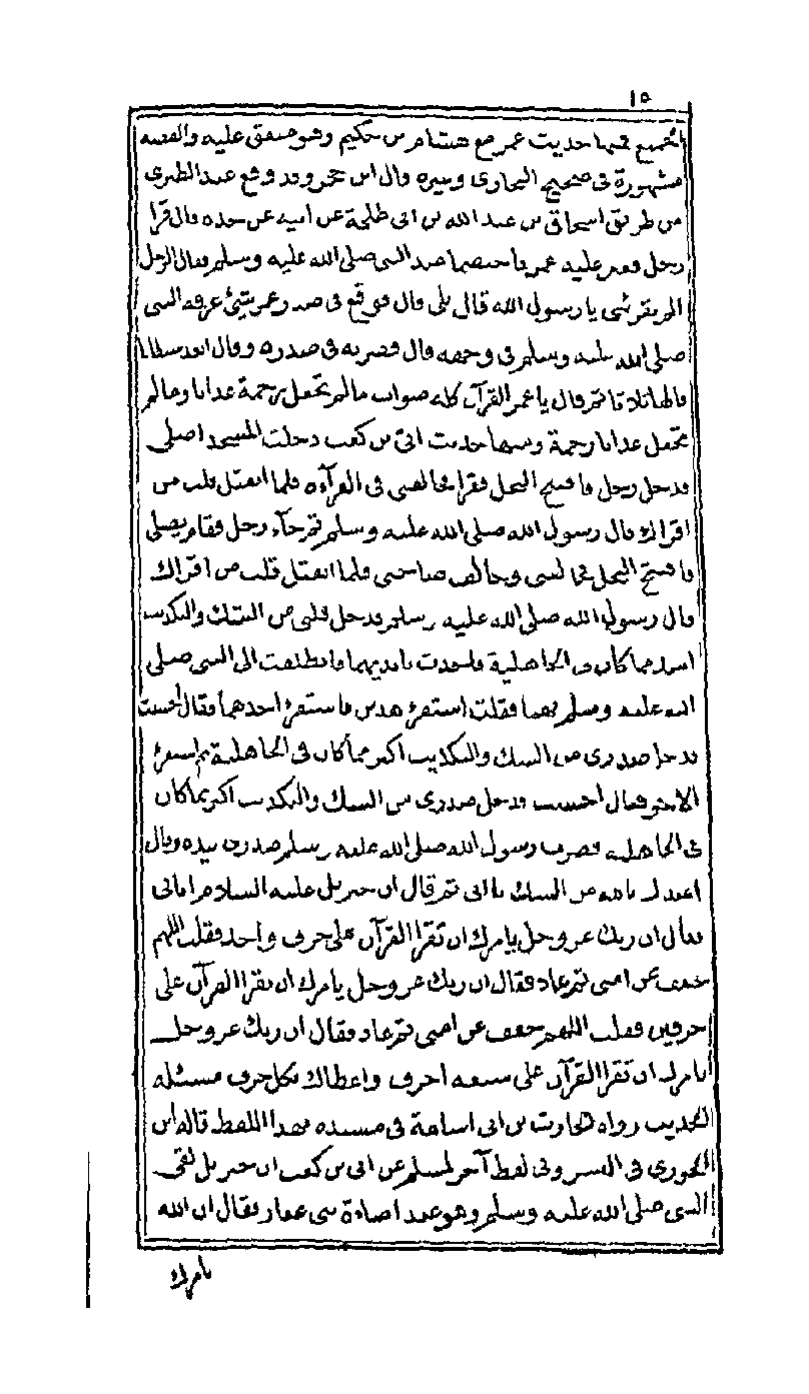 ١٥
الجميع فمنها حديث عمر مع هشام بن حكيم وهو متفق عليه والقصة
مشهورة في صحيح البخاري وغيره قال ابن حجر وقد وقع عند الطبري
من طريق اسحاق بن عبد الله بن ابى طلحة عن ابيه عن جده قال قرا
رجل فغير عليه عمر فاختصما عند النبى صلى الله عليه وسلم فقال الرجل
الم تقرئنى يا رسول الله قال بلى قال فوقع فى صدر عمر شئ عرفه النبى
صلى الله عليه وسلم فى وجهه قال فضرب فى صدره وقال ابعد شيطانا
قالها ثلاثا ثم قال يا عمر القرآن كله صواب مالم تجعل رحمة عذابا ومالم
تجعل عذابا رحمة ومنها حديث ابىّ بن كعب دخلت المسجد اصلى
فدخل رجل فافتتح النحل فقرا فخالفنى فى القراءة فلما انفتل قلت من
اقراك قال رسول الله صلى الله عليه وسلم ثم جآء رجل فقام يصلى
فافتتح النحل فخالفنى وخالف صاحبى فلما انفتل قلت من اقراك
قال رسول الله صلى الله عليه وسلم فدخل قلبى من الشك والتكذيب
اشد مما كان فى الجاهلية فاخذت بايديهما فانطلقت الى النبى صلى
الله عليه وسلم بهما فقلت استقرئ هذين فاستقرئ احدهما فقال احسنت
فدخل صدرى من الشك والتكذيب اكبر مما كان فى الجاهلية ثم استقرئ
الاخر فقال احسنت فدخل صدرى من الشك والتكذيب اكبر مما كان
فى الجاهلية فضرب رسول الله صلى الله عليه وسلم صدرى بيده وقال
اعيذك بالله من الشك يا ابى ثم قال ان جبريل عليه السلام اتانى
فقال ان ربك عز وجل يامرك ان تقرا القرآن على حرف واحد فقلت اللهم
خفف عن امتى ثم عاد فقال ان ربك عز وجل يامرك ان تقرا القرآن على
حرفين فقلت اللهم خفف عن امتى ثم عاد فقال ان ربك عز وجل
يامرك ان تقرا القرآن على سبعة احرف واعطاك بكل حرف مسئلة
الحديث رواه الحارث بن ابى اسامة فى مسنده بهذا اللفظ قاله ابن
الجزرى فى النشر وفى لفظ آخر لمسلم عن ابى بن كعب ان جبريل لقى
النبى صلى الله عليه وسلم وهو عند اضاءة بنى غفار فقال ان الله
يامرك